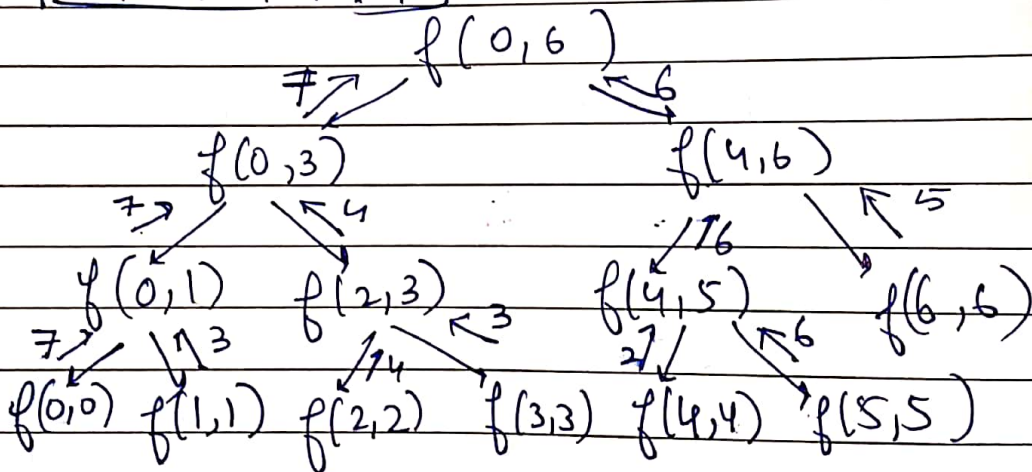 f(0,6)
7 6
f(0,3) f(4,6)
7 4 6 5
f(0,1) f(2,3) f(4,5) f(6,6)
7 3 4 3 2 6
f(0,0) f(1,1) f(2,2) f(3,3) f(4,4) f(5,5)